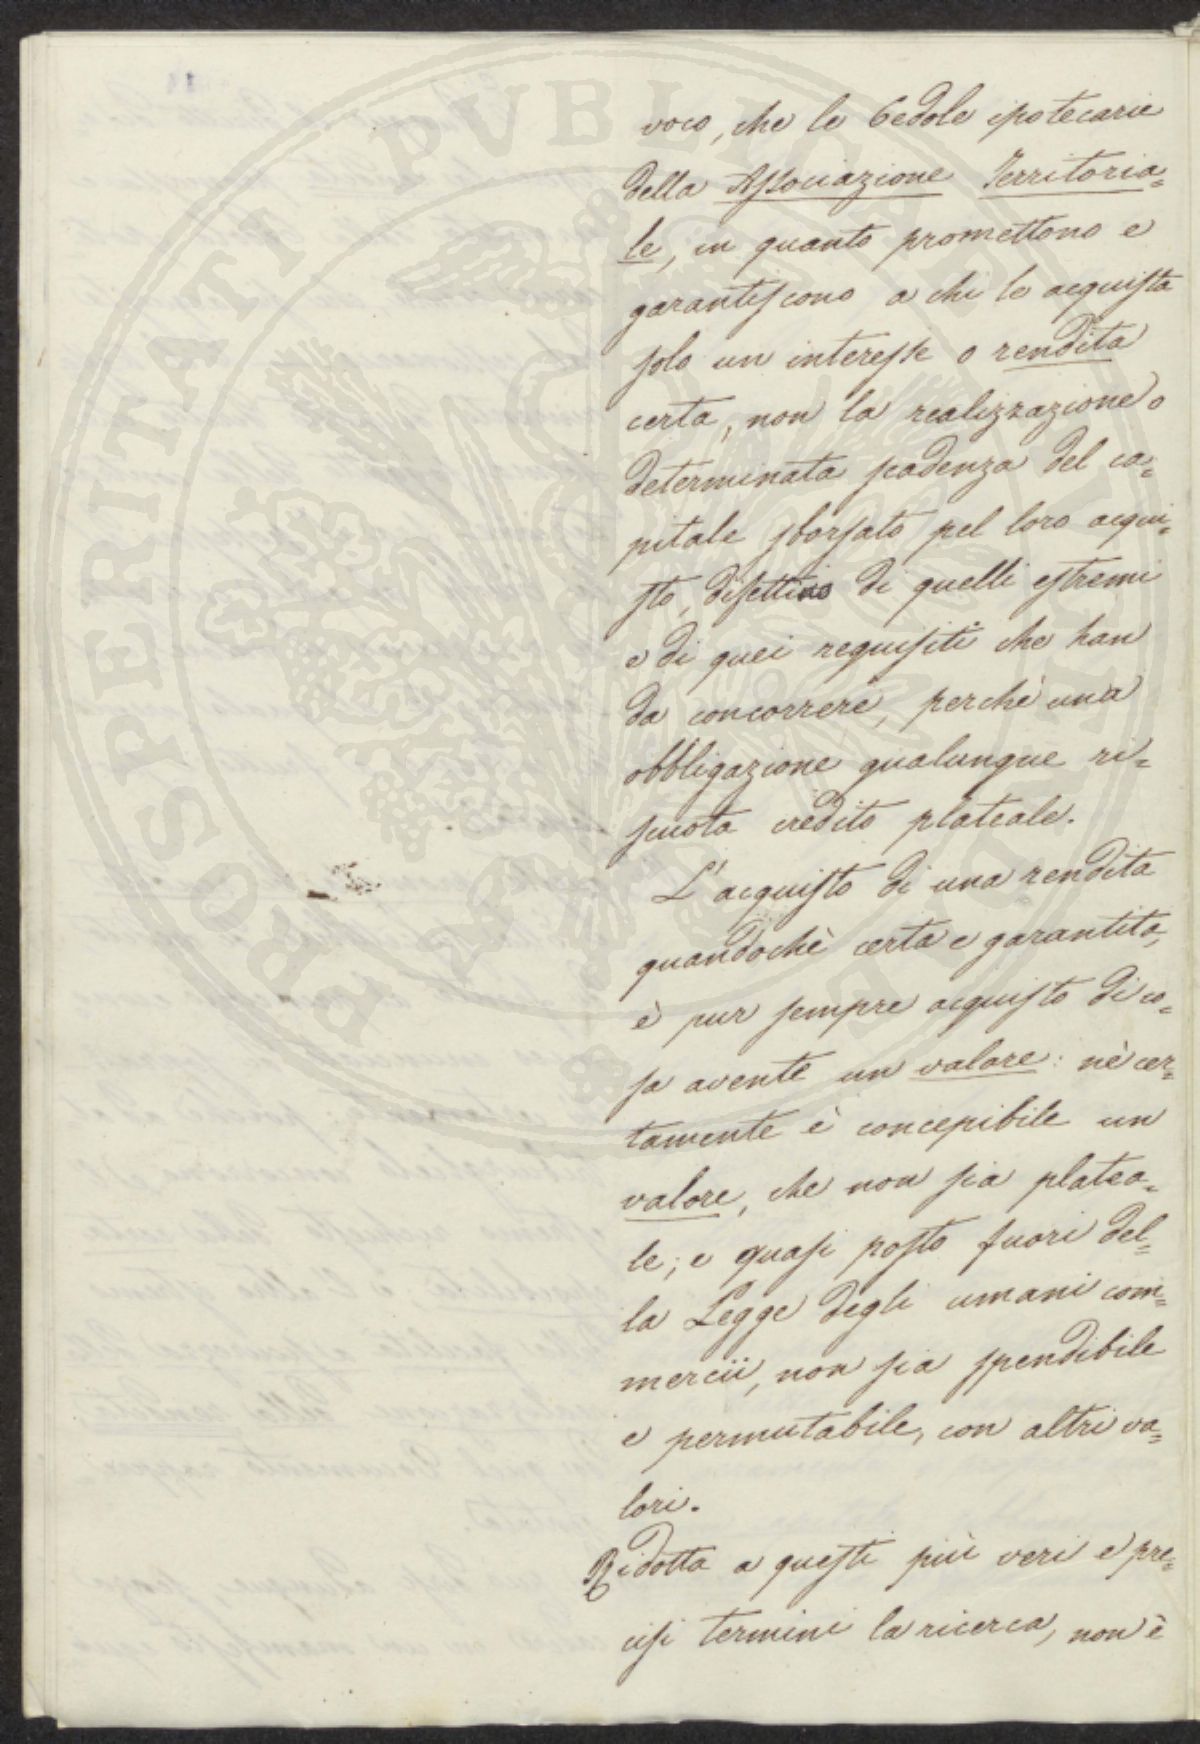 voco, che le Cedole ipotecarie
della Associazione Territoria=
le, in quanto promettono e
garantiscono a chi le acquista
solo un interesse o rendita
certa, non la realizzazione o
determinata scadenza del ca=
pitale sborsato pel loro acqui=
sto, difettino di quelli estremi
e di quei requisiti che han
da concorrere, perchè una
obbligazione qualunque ri=
scuota credito plateale.
L'acquisto di una rendita
quandochè certa e garantita,
è pur sempre acquisto di co=
sa avente un valore: nè cer=
tamente è concepibile un
valore, che non sia platea=
le; e quasi posto fuori del=
la Legge degli umani com=
mercii, non sia spendibile
e permutabile, con altri va=
lori.
Ridotta a questi più veri e pre=
cisi termini la ricerca, non è
PROSPERITATI PVBLICAE